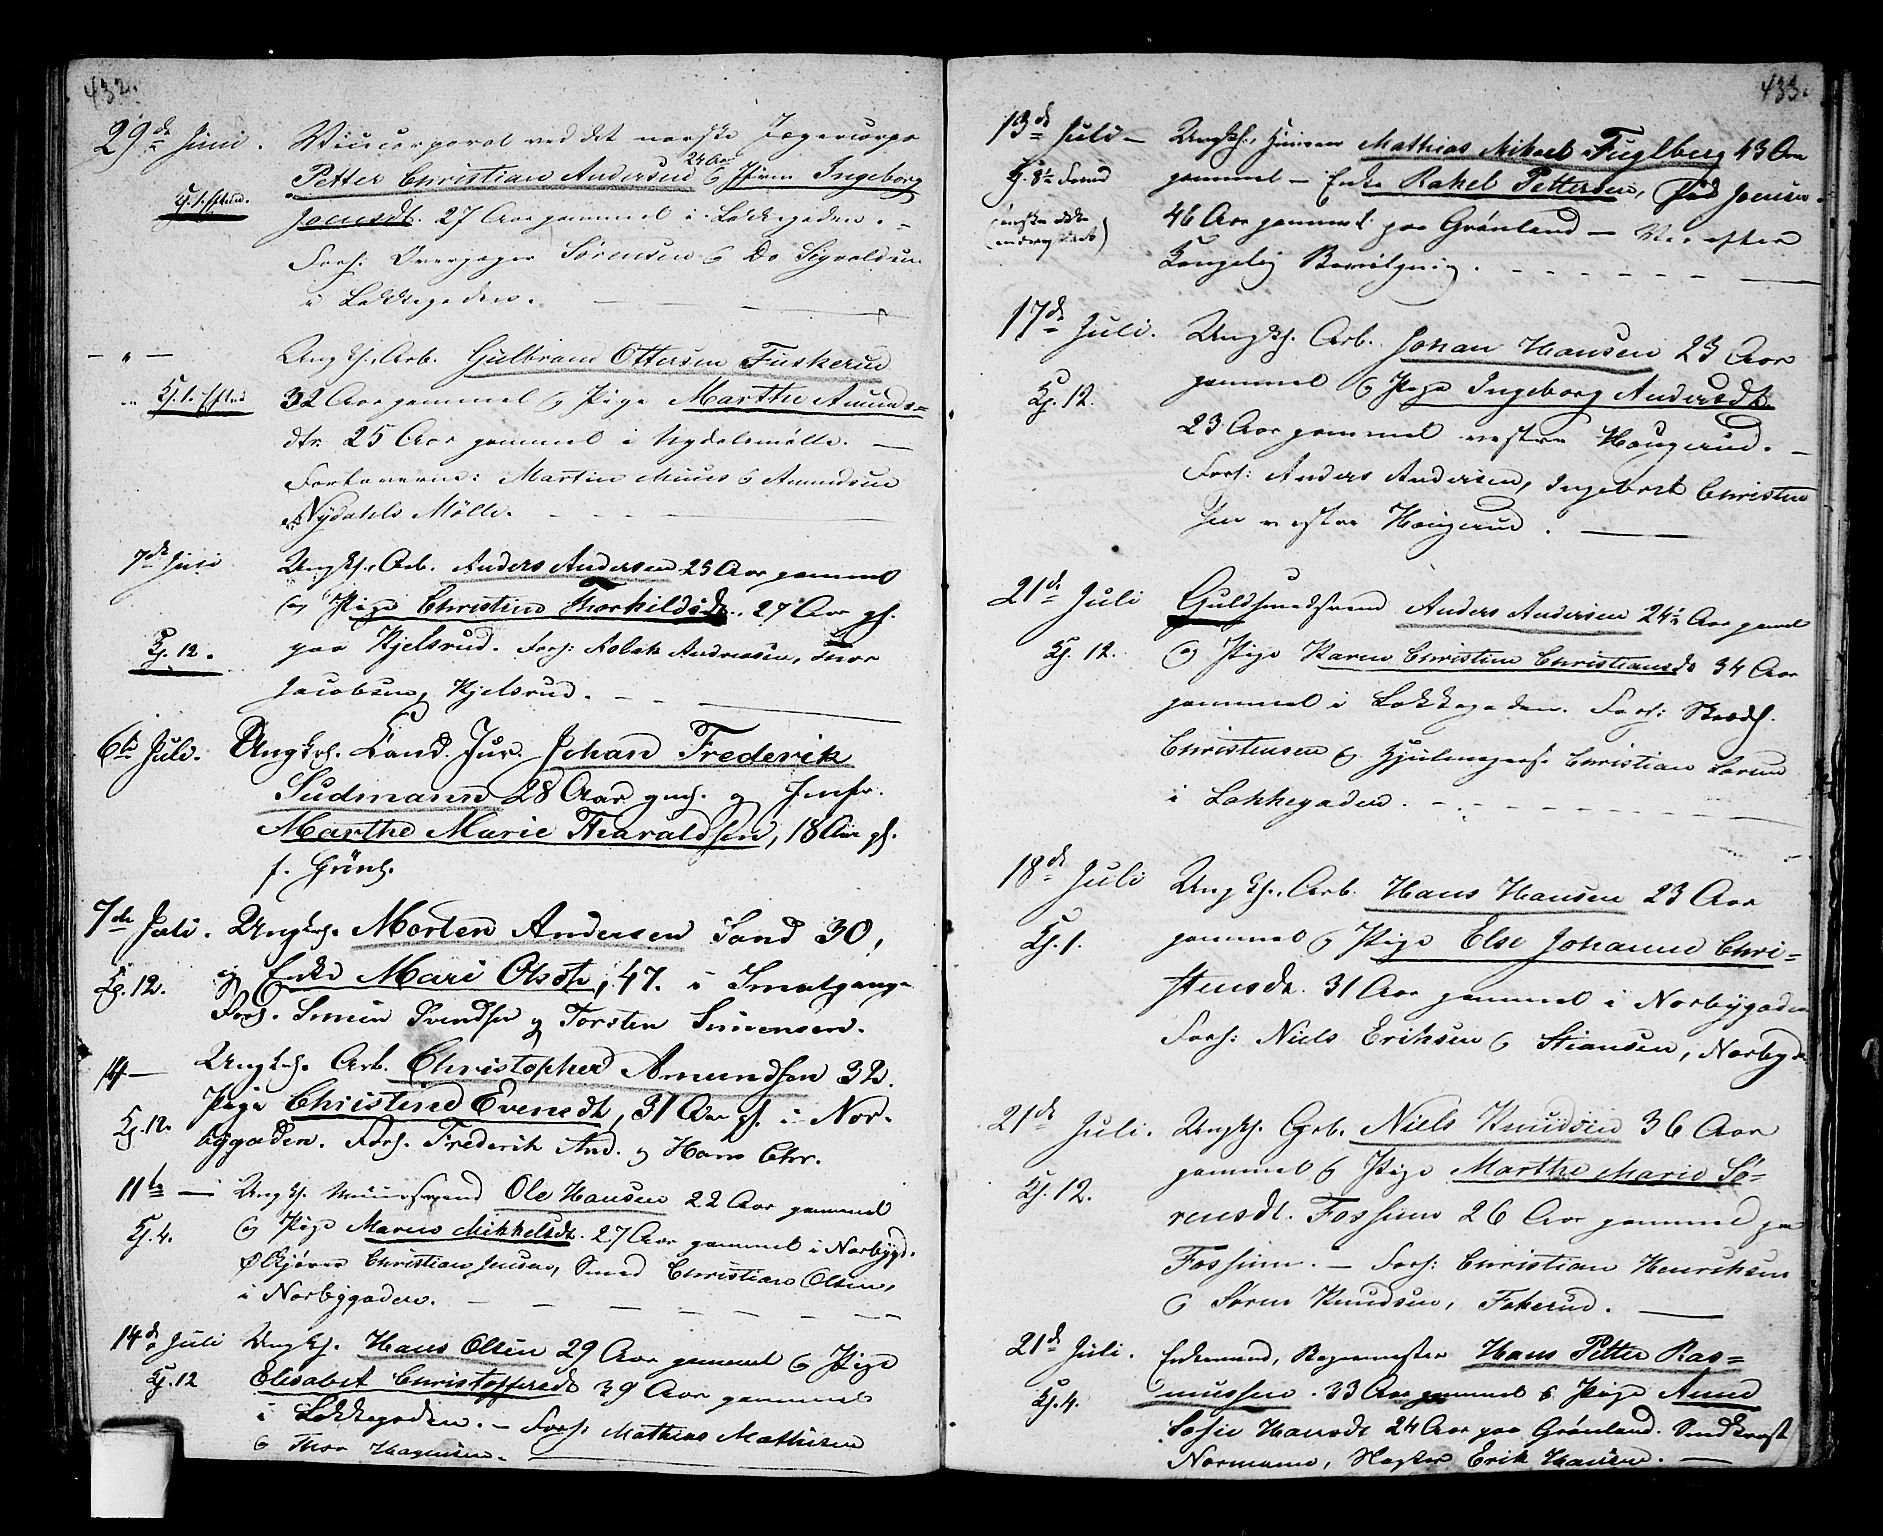 432.
29de Juni. Vicecorporal ved det norske Jægercorps
Petter Christian Andersen 24 Aar & Pigen Ingeborg
Kl. 1. Efterm.
Jonsdt. 27 Aar gammel i Lakkegaden. -
Forl: Overjæger Sørensen & Do Sigvaldsen
i Lakkegaden.
- " - Ungk. Arb. Gulbrand Ottersen Fuskerud
Kl. 1. Efterm. 32 Aar gammel & Pige Marthe Amunds=
dtr. 25 Aar gammel i Nydalsmølle. -
Forloverne: Martin Muus & Amundsen
Nydahls Mølle.
7de Juli Ungk. Arb. Anders Andersen 25 Aar gammel
og Pige Christine Thorkildsdt. 27 Aar gl.
Kl. 12. paa Kjelsrud. Forl: Aslak Andreasen, Thor
Jacobsen, Kjelsrud. -
6te Juli. Ungk. Cand. Jur. Johan Frederik
Sudmann 28 Aar gml. og Jomfr.
Marthe Marie Haraldsen, 18 Aar gl.
f. Grönl.
7de Juli. Ungk. Morten Andersen Sand 30,
Kl. 12. og Enke Mari Olsdt, 47. i Smalgang
Forl. Simen Svendsen og Torsten Simensen.
14 - Ungk. Arb. Christopher Amundsen 32.
Pige Christine Evensdt, 31 Aar gl. i Nor-
Kl. 12. bygaden. Forl. Frederik And. og Hans Chr.
11te - Ungk. Muursvend Ole Hansen 22 Aar gammel
Kl. 4. og Pige Maren Mikkelsdt. 27 Aar gammel i Norbygd.
Christian Jensen, Smed Christian Olsen,
i Norbygaden.
14de Juli Ungk. Hans Olsen 29 Aar gammel & Pige
Kl. 12 Elisabet Christoffersdt 39 Aar gammel
i Lakkegaden. - Forl: Mathias Mathisen
& Thor Hagensen.
433.
13de Juli - Ungk. Mathias Mikael Fuglberg 43 Aar
Kl. 8 gammel - Enke Rahel Pettersen, født Jensen
46 Aar gammel paa Grønland - Vies efter
Kongelig Bevilgning.
17de Juli. Ungk. Arb. Johan Hansen 23 Aar
Kl. 12. gammel & Pige Ingeborg Andersdt.
23 Aar gammel vestre Haugerud. -
Forl: Anders Andersen, Ingebret Christen
sen vestre Haugerud. -
21de Juli Guldsmedsvend Anders Andersen 24½ Aar gamel
Kl. 12. og Pige Karen Christine Christiansdt 34 Aar
gammel i Lakkegaden. Forl: Skredd.
Christensen & Christian Larsen
i Lakkegaden.
18de Juli Ungk. Arb. Hans Hansen 23 Aar
Kl. 1. gammel & Pige Else Johanne Chri=
stensdt. 31 Aar gammel i Norbygaden
Forl: Niels Eriksen & Stiansen, Norbyg.
21de Juli. Ungk. Arb. Niels Knudsen 36 Aar
gammel & Pige Marthe Marie Sø-
Kl. 12. rensdt. Fossum 26 Aar gammel paa
Fossum. - Forl: Christian Henriksen
& Søren Knudsen, Fakerud.
21de Juli. Enkemand, Bagermester Hans Petter Ras=
Kl. 4. mussen 33 Aar gammel & Pige Anne
Sofie Hansdt 24 Aar paa Grønland.
Normann, Erik Hansen. -